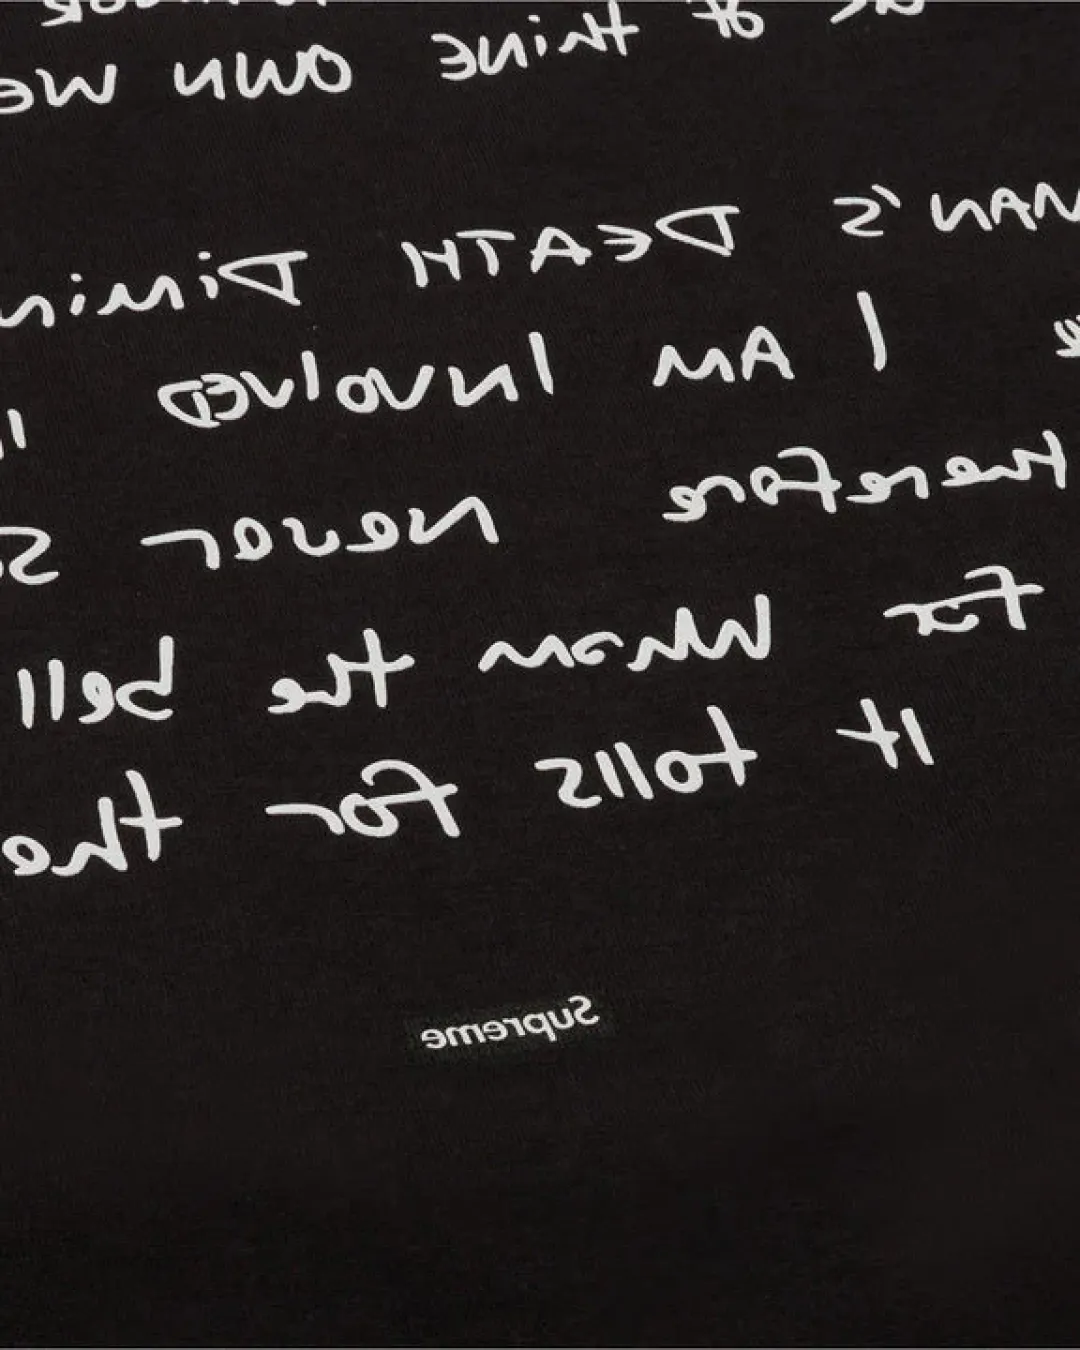 of thine own
MAN'S DEATH Dimin
I AM Involved
therefore never
For Whom the bell
It tolls for thee
Supreme